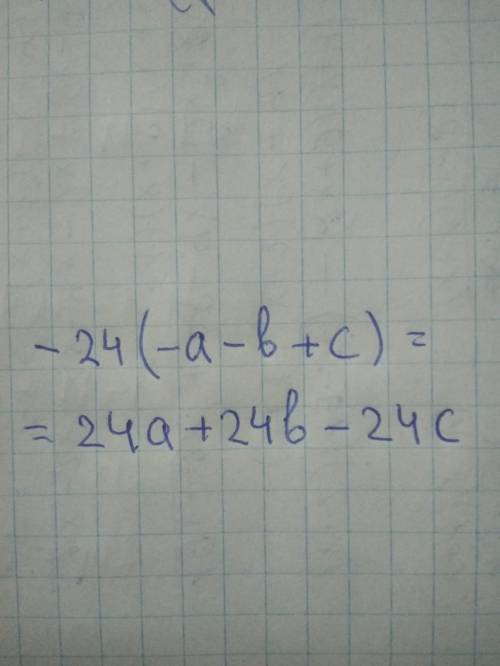 -24(-a-b+c)=
=24a+24b-24c